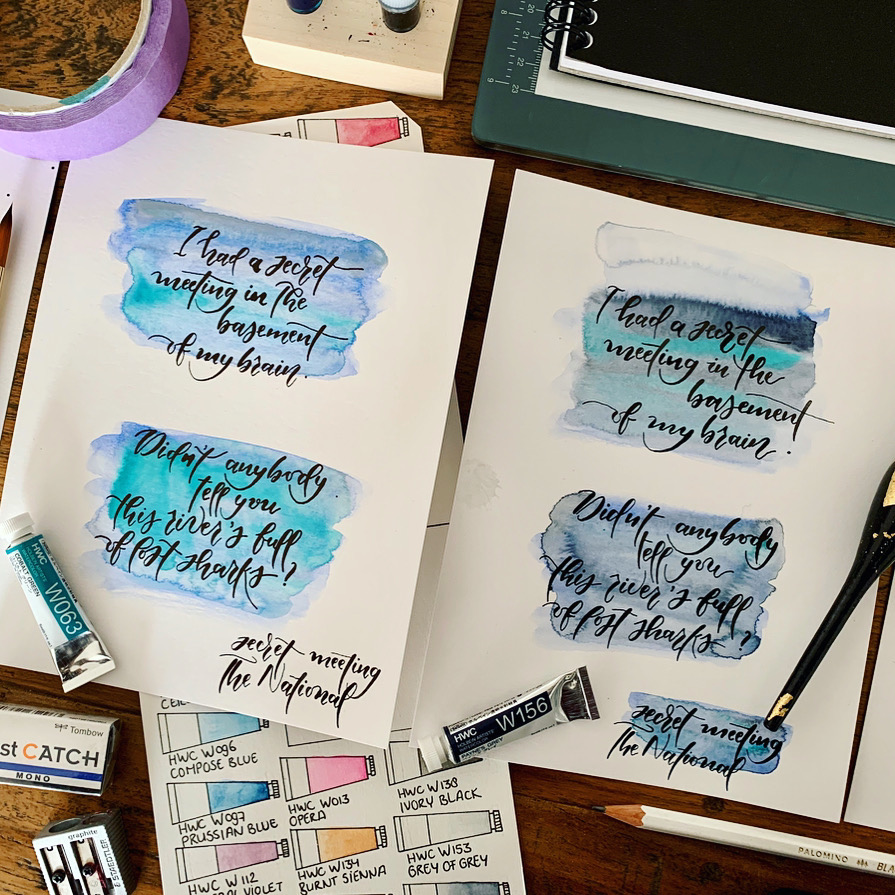 I had a secret
meeting in the
basement
of my brain.
Didn't anybody
tell you
this river's full
of lost sharks?
secret meeting
The National
I had a secret
meeting in the
basement
of my brain.
Didn't anybody
tell you
this river's full
of lost sharks?
secret meeting
The National
HWC
COBALT GREEN
W063
HWC
W156
Tombow
CATCH
MONO
graphite
STAEDTLER
HWC W096
COMPOSE BLUE
HWC W097
PRUSSIAN BLUE
HWC W112
VIOLET
HWC W013
OPERA
HWC W134
BURNT SIENNA
HWC W138
IVORY BLACK
HWC W153
GREY OF GREY
PALOMINO
8
9
20
22
23